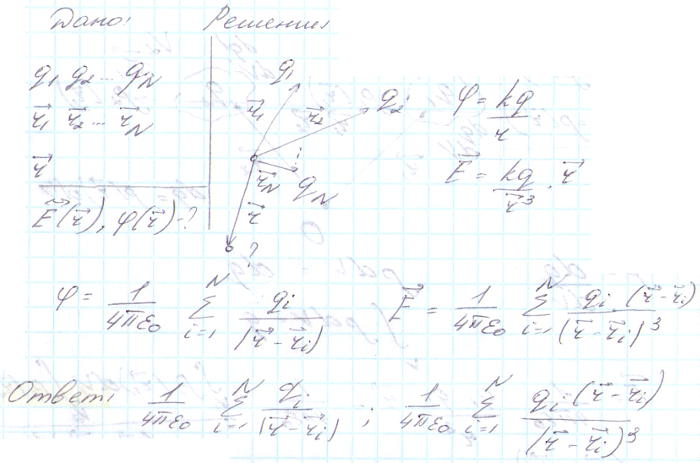 Дано: Решение
q₁ q₂ ... q_N
r⃗₁ r⃗₂ ... r⃗_N
r⃗
E⃗(r⃗), φ(r⃗) - ?
q₁
r⃗₁ r⃗₂ q₂
r⃗_N q_N
r⃗
?
φ = kq/r
E⃗ = kq/r⃗³ · r⃗
φ = 1/4πε₀ Σ_{i=1}^{N} q_i/|r⃗-r⃗_i| E⃗ = 1/4πε₀ Σ_{i=1}^{N} q_i·(r⃗-r⃗_i)/|r⃗-r⃗_i|³
Ответ: 1/4πε₀ Σ_{i=1}^{N} q_i/|r⃗-r⃗_i| ; 1/4πε₀ Σ_{i=1}^{N} q_i·(r⃗-r⃗_i)/|r⃗-r⃗_i|³